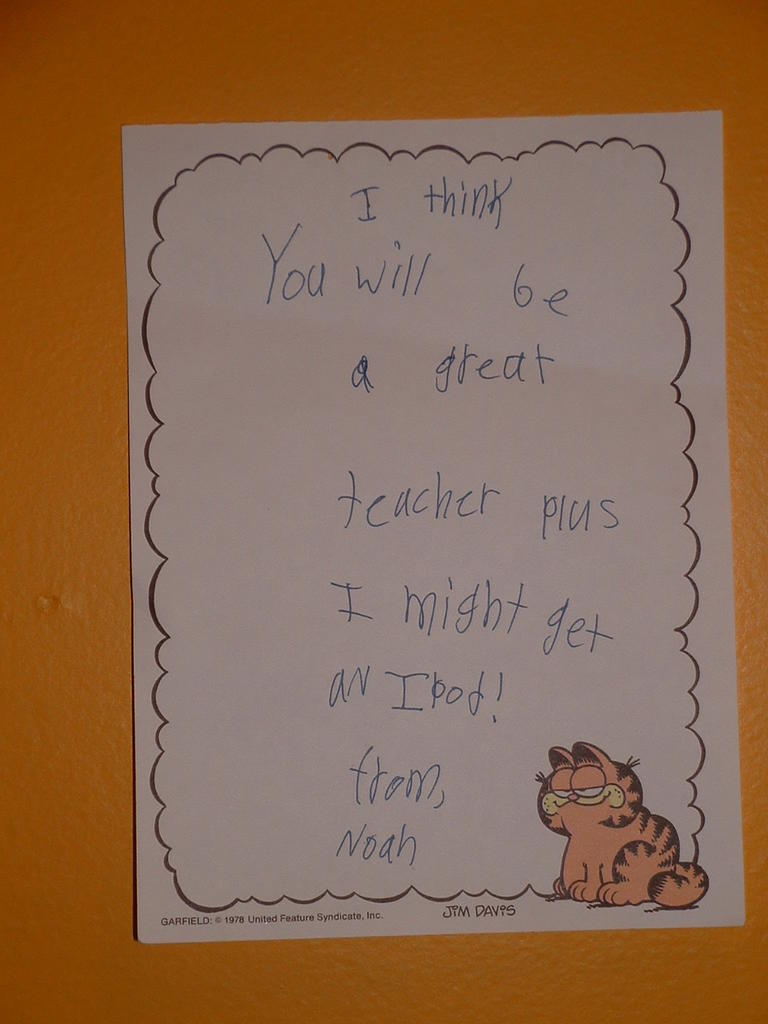 I think
You will be
a great
teacher plus
I might get
an Ipod!
from,
Noah
GARFIELD: © 1978 United Feature Syndicate, Inc.
JIM DAVIS